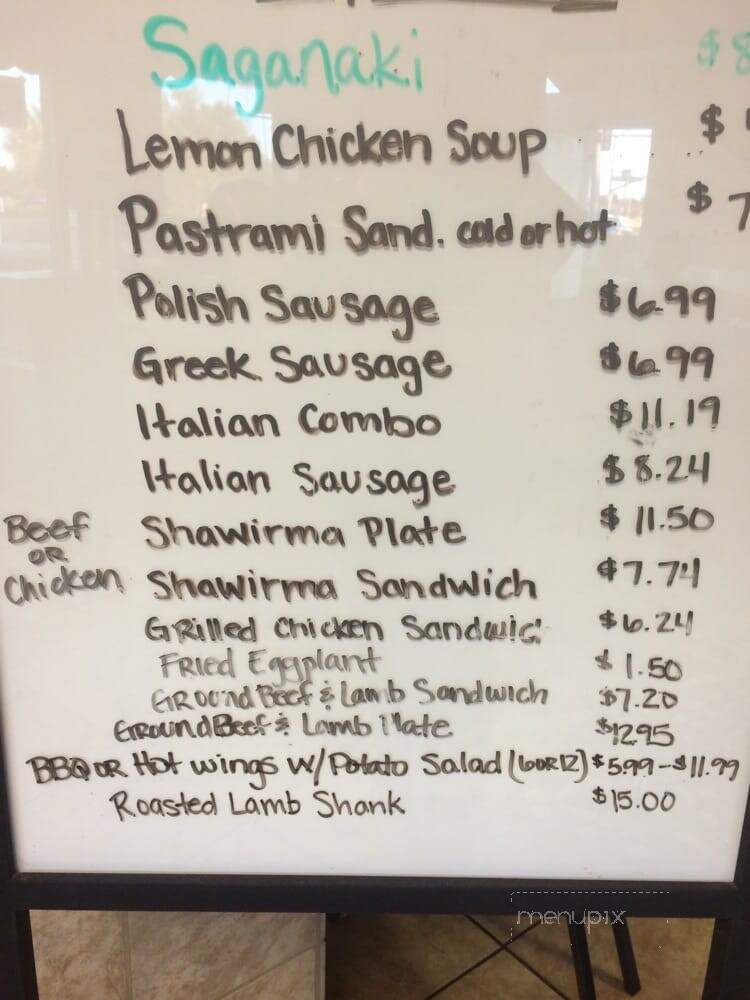 Saganaki $8
Lemon Chicken Soup $
Pastrami Sand. cold or hot $7
Polish Sausage $6.99
Greek Sausage $6.99
Italian Combo $11.19
Italian Sausage $8.24
Beef OR Chicken
Shawirma Plate $11.50
Shawirma Sandwich $7.74
GRilled Chicken Sandwic $6.24
FRied Eggplant $1.50
GROUND Beef & Lamb Sandwich $7.20
GROUND Beef & Lamb Plate $12.95
BBQ OR Hot wings w/Potato Salad (6 OR 12) $5.99-$11.99
Roasted Lamb Shank $15.00
menupix